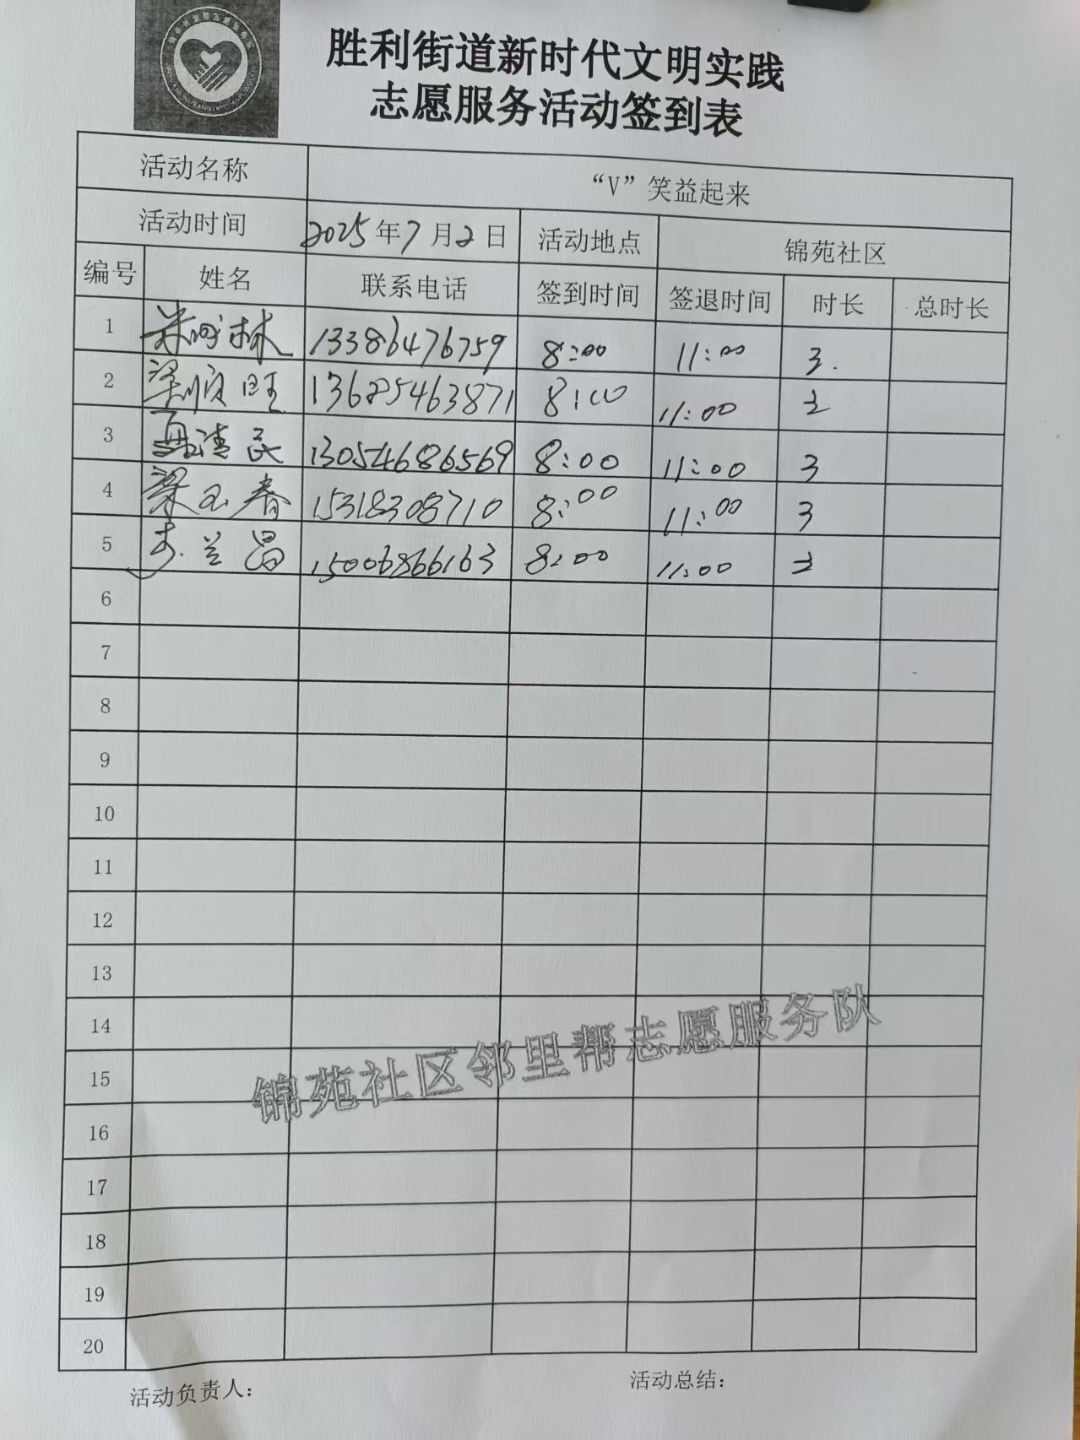 胜利街道新时代文明实践
志愿服务活动签到表
活动名称 “V”笑益起来
活动时间 2025年7月2日 活动地点 锦苑社区
编号 姓名 联系电话 签到时间 签退时间 时长 总时长
1 林 13386476759 8:00 11:00 3.
2 梁顺旺 13685463871 8:00 11:00 3
3 清民 13054686569 8:00 11:00 3
4 梁玉春 15318308710 8:00 11:00 3
5 兰昌 15006866163 8:00 11:00 3
6
7
8
9
10
11
12
13
14
锦苑社区邻里帮志愿服务队
15
16
17
18
19
20
活动负责人: 活动总结: